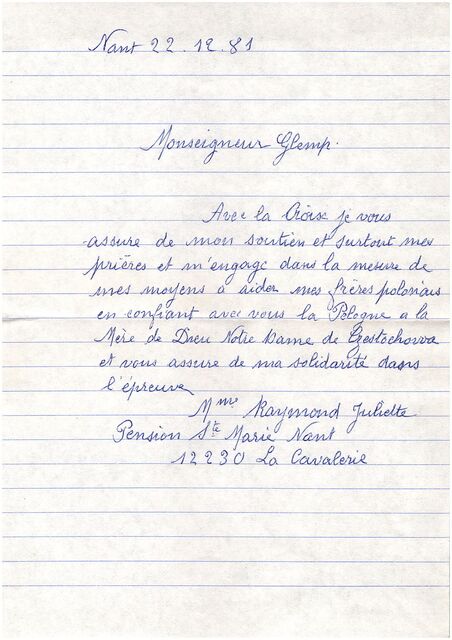 Nant 22.12.81
Monseigneur Glemp.
Avec la Croix je vous
assure de mon soutien et surtout mes
prières et m'engage dans la mesure de
mes moyens a aider mes frères polonais
en confiant avec vous la Pologne a la
Mère de Dieu Notre Dame de Czestochowa
et vous assure de ma solidarité dans
l'épreuve
Mme Raymond Juliette
Pension Ste Marie Nant
12230 La Cavalerie